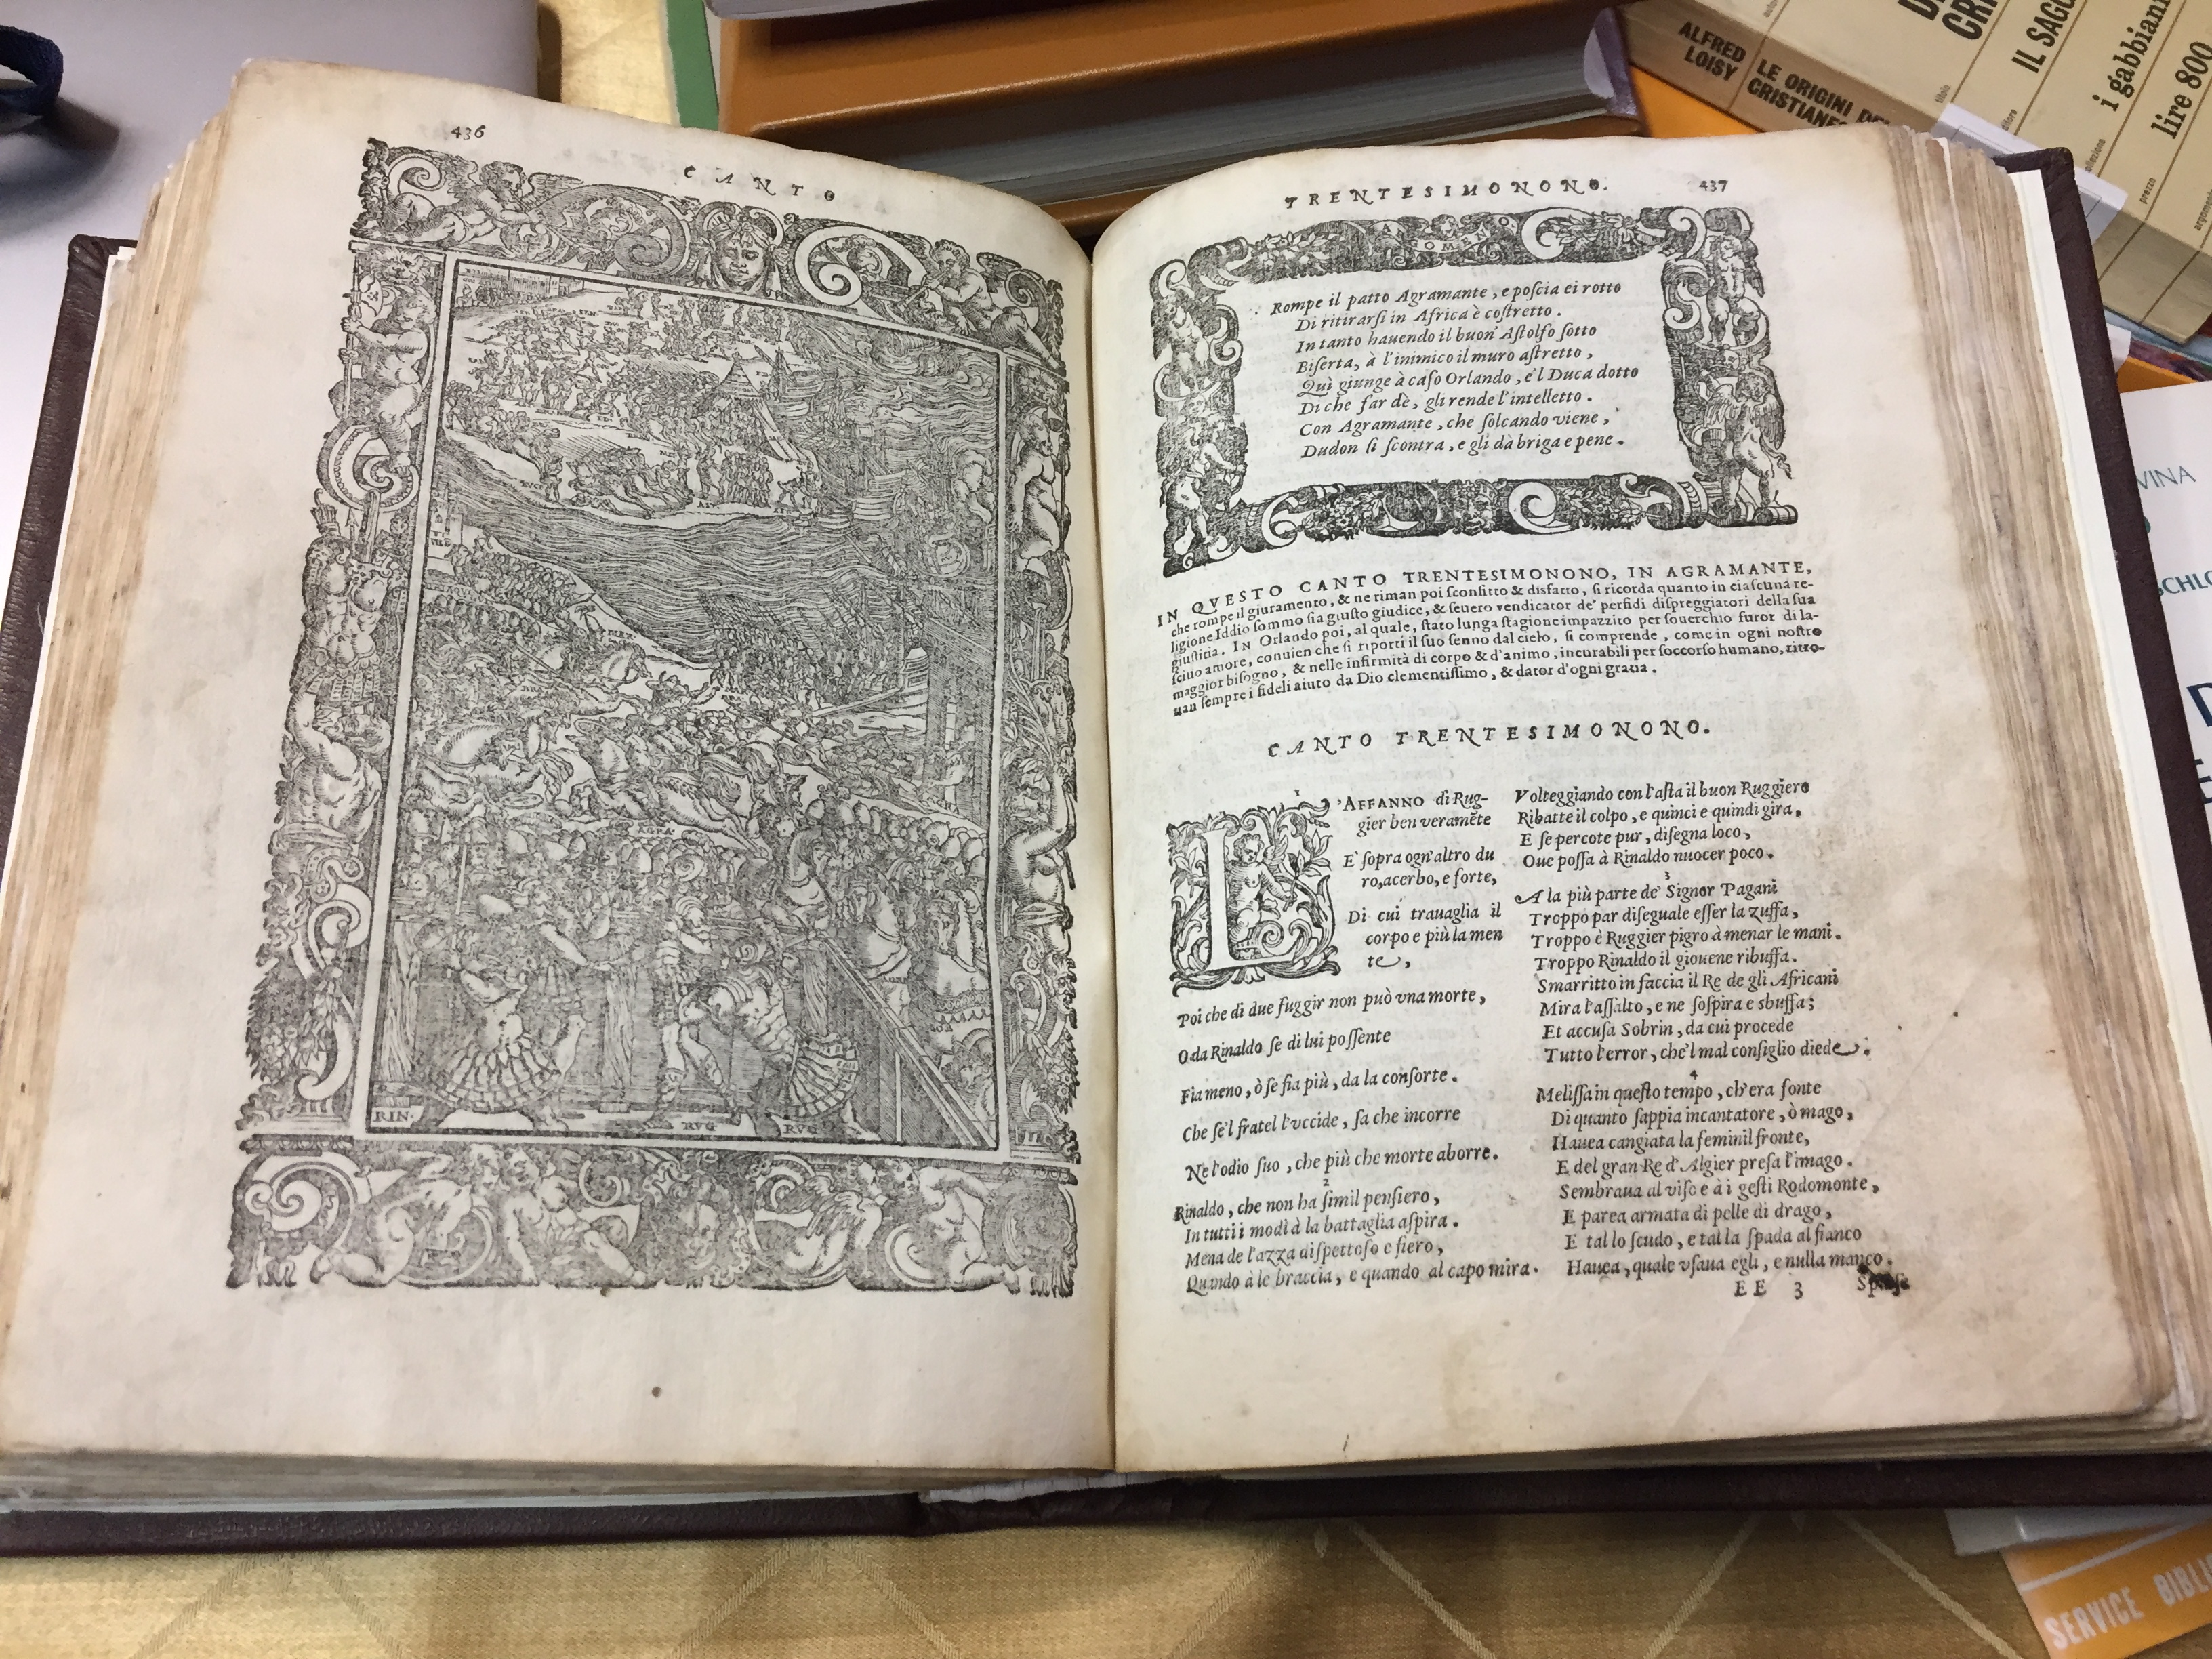 436
CANTO
RIN.
RVG
RVG
AGRA
TRENTESIMONONO.
437
Rompe il patto Agramante, e poſcia ei rotto
Di ritirarſi in Africa è coſtretto.
In tanto hauendo il buon' Aſtolfo ſotto
Biſerta, à l'inimico il muro aſtretto,
Quì giunge à caſo Orlando, e'l Duca dotto
Di che far dè, gli rende l'intelletto.
Con Agramante, che ſolcando viene,
Dudon ſi ſcontra, e gli dà briga e pene.
IN QVESTO CANTO TRENTESIMONONO, IN AGRAMANTE,
che rompe il giuramento, & ne riman poi ſconfitto & disfatto, ſi ricorda quanto in ciaſcuna re-
ligione Iddio ſommo ſia giuſto giudice, & ſeuero vendicator de' perfidi diſpreggiatori della ſua
giuſtitia. IN Orlando poi, al quale, ſtato lunga ſtagione impazzito per ſouerchio furor di la-
ſciuo amore, conuien che ſi riporti il ſuo ſenno dal cielo, ſi comprende, come in ogni noſtro
maggior biſogno, & nelle infirmità di corpo & d'animo, incurabili per ſoccorſo humano, ritro-
uan ſempre i fideli aiuto da Dio clementiſſimo, & dator d'ogni gratia.
CANTO TRENTESIMONONO.
1
L'AFFANNO di Rug-
gier ben veramẽte
E' ſopra ogn'altro du
ro, acerbo, e forte,
Di cui trauaglia il
corpo e più la men
te,
Poi che di due fuggir non può vna morte,
O da Rinaldo ſe di lui poſſente
Fia meno, ò ſe fia più, da la conſorte.
Che ſe'l fratel l'vccide, ſa che incorre
Ne l'odio ſuo, che più che morte aborre.
2
Rinaldo, che non ha ſimil penſiero,
In tutti i modi à la battaglia aſpira.
Mena de l'azza diſpettoſo e fiero,
Quando à le braccia, e quando al capo mira.
Volteggiando con l'aſta il buon Ruggiero
Ribatte il colpo, e quinci e quindi gira,
E ſe percote pur, diſegna loco,
Oue poſſa à Rinaldo nuocer poco.
3
A la più parte de' Signor Pagani
Troppo par diſeguale eſſer la zuffa,
Troppo è Ruggier pigro à menar le mani.
Troppo Rinaldo il giouene ribuffa.
Smarritto in faccia il Re de gli Africani
Mira l'aſſalto, e ne ſoſpira e sbuffa;
Et accuſa Sobrin, da cui procede
Tutto l'error, che'l mal conſiglio diede.
4
Meliſſa in queſto tempo, ch'era fonte
Di quanto ſappia incantatore, ò mago,
Hauea cangiata la feminil fronte,
E del gran Re d'Algier preſa l'imago.
Sembraua al viſo e à i geſti Rodomonte,
E parea armata di pelle di drago,
E tal lo ſcudo, e tal la ſpada al fianco
Hauea, quale vſaua egli, e nulla manco.
EE 3
ALFRED
LOISY
LE ORIGINI DEL
titolo
IL SAGG
i gabbiani
prezzo
lire 800
VINA
SCHLO
SERVICE BIBLI